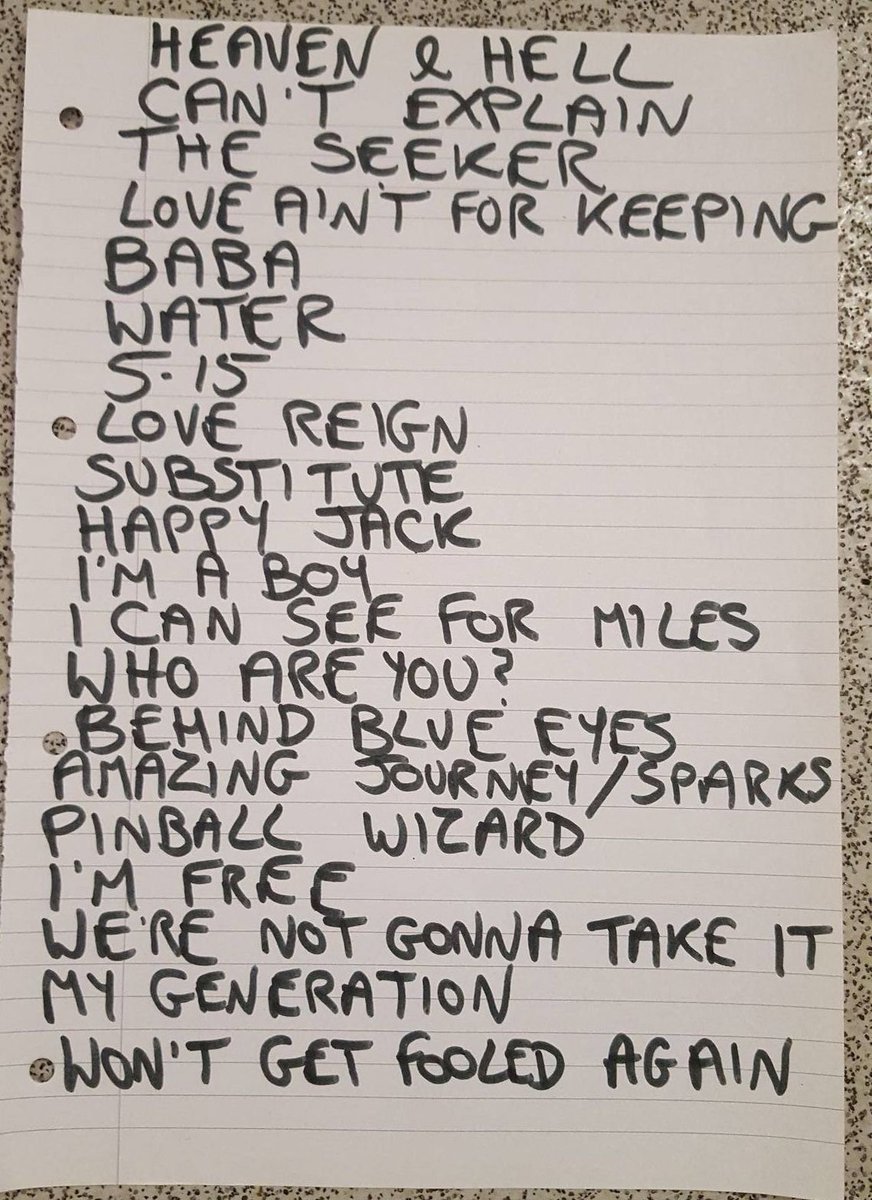 HEAVEN & HELL
CAN'T EXPLAIN
THE SEEKER
LOVE AIN'T FOR KEEPING
BABA
WATER
5-15
LOVE REIGN
SUBSTITUTE
HAPPY JACK
I'M A BOY
I CAN SEE FOR MILES
WHO ARE YOU?
BEHIND BLUE EYES
AMAZING JOURNEY/SPARKS
PINBALL WIZARD
I'M FREE
WE'RE NOT GONNA TAKE IT
MY GENERATION
WON'T GET FOOLED AGAIN